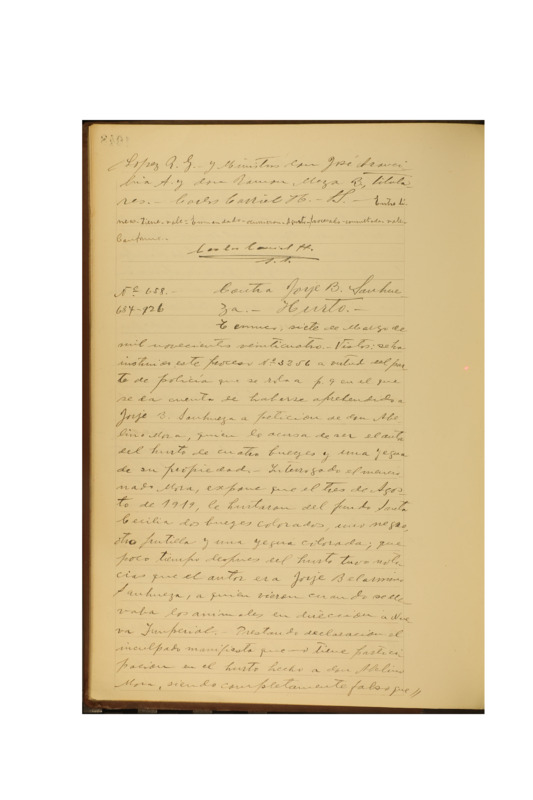 Lopez R. G. y Ministros don José Aransi-
bia A. y don Ramon Meza R, titula-
res. - Carlos Carriel H. - S. - Entre lí-
neas: Tiene - vale:
Conforme. -
Carlos Carriel H.
No 658. - Contra Jorje B. Sanhue-
684-926 za. - Hurto. -
Temuco, siete de Marzo de
mil novecientos veinticuatro. - Vistos: se ha
instruido este proceso No 3256 a virtud del par-
te de policía que se rola a f. 9 en el que
se da cuenta de haberse aprehendido a
Jorje B. Sanhueza a peticion de don Abe-
lino Mora, quien lo acusa de ser el autor
del hurto de cuatro bueyes y una yegua
de su propiedad. - Interrogado el mencio-
nado Mora, expone que el tres de Agos-
to de 1919, le hurtaron del fundo Santa
Cecilia dos bueyes colorados, uno negro,
otro frutilla y una yegua colorada; que
poco tiempo despues del hurto tuvo noti-
cias que el autor era Jorje Belarmino
Sanhueza, a quien vieron cuando se lle-
vaba los animales en direccion a Nue-
va Imperial. - Prestando declaracion el
inculpado manifiesta que no tiene partici-
pacion en el hurto hecho a don Abelino
Mora, siendo completamente falso que //